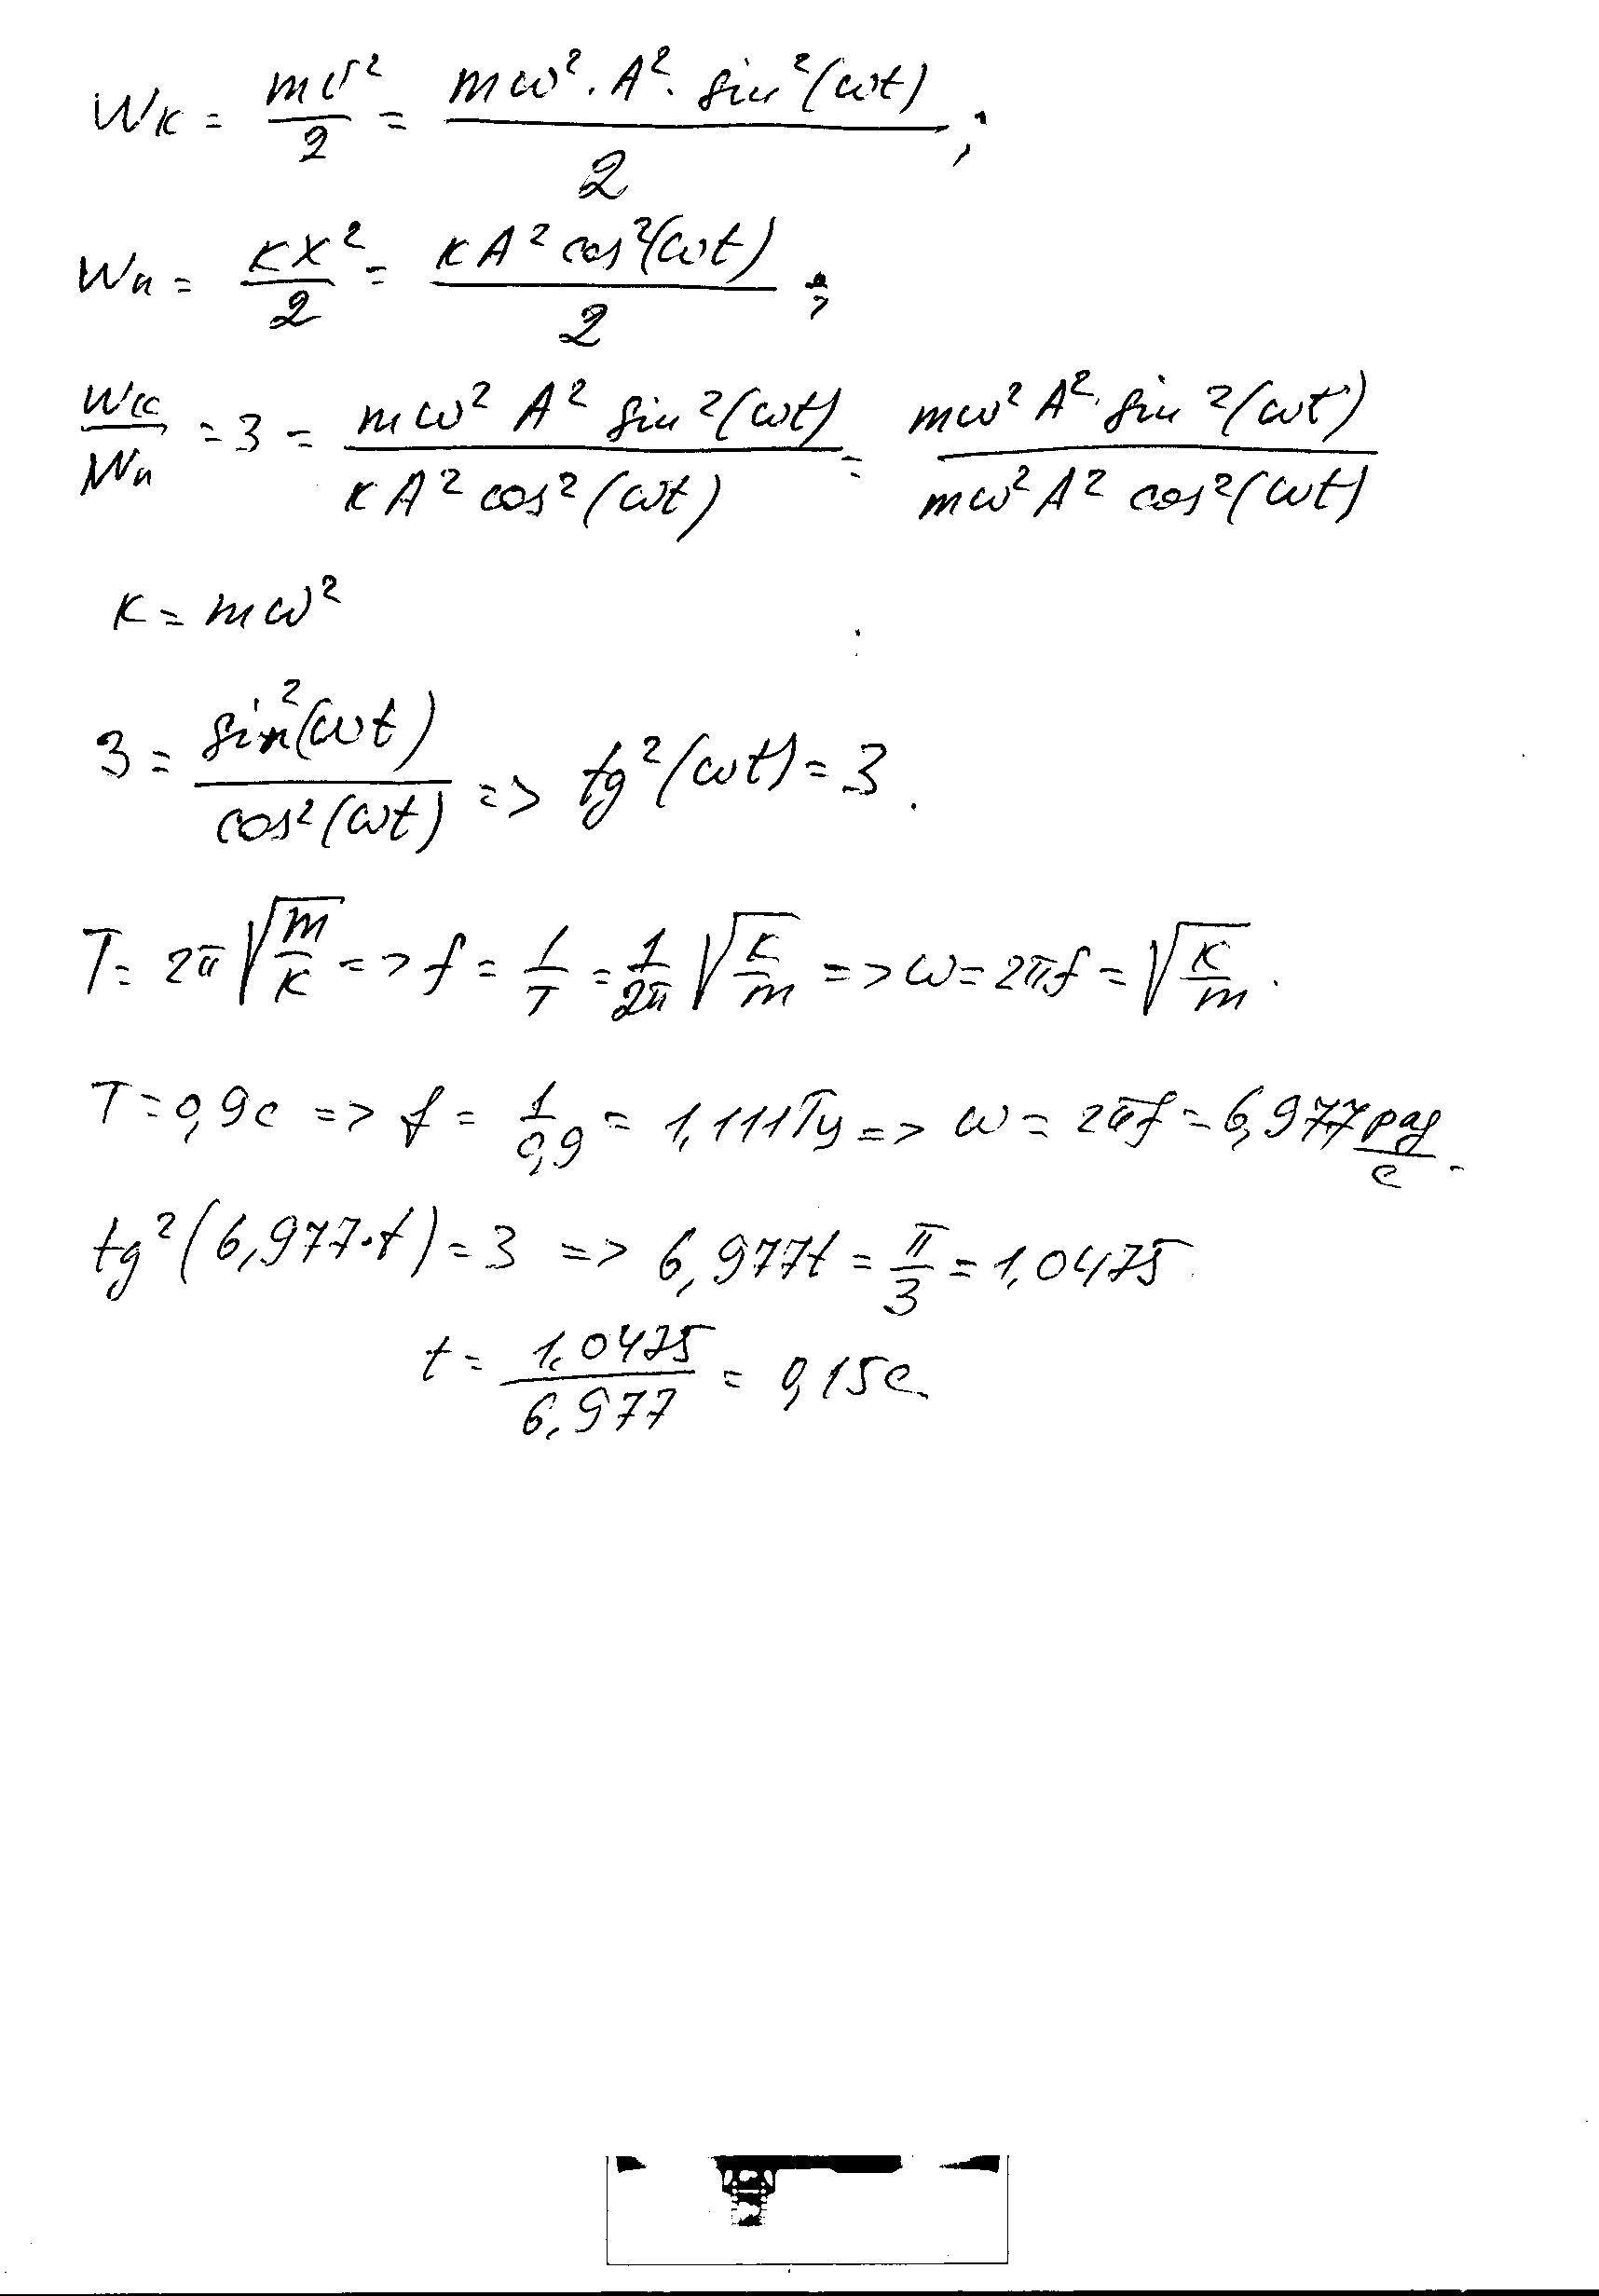 Wк = mv²/2 = mω²·A²·sin²(ωt)/2 ;
Wп = кx²/2 = кA²cos²(ωt)/2 ;
Wк/Wп = 3 = mω²A²sin²(ωt)/кA²cos²(ωt) = mω²A²·sin²(ωt)/mω²A²cos²(ωt)
к = mω²
3 = sin²(ωt)/cos²(ωt) => tg²(ωt) = 3.
T = 2π√(m/к) => f = 1/T = 1/2π √(к/m) => ω = 2πf = √(к/m).
T = 0,9с => f = 1/0,9 = 1,111Гц => ω = 2πf = 6,977 рад/с.
tg²(6,977·t) = 3 => 6,977t = π/3 = 1,0475.
t = 1,0475/6,977 = 0,15с.